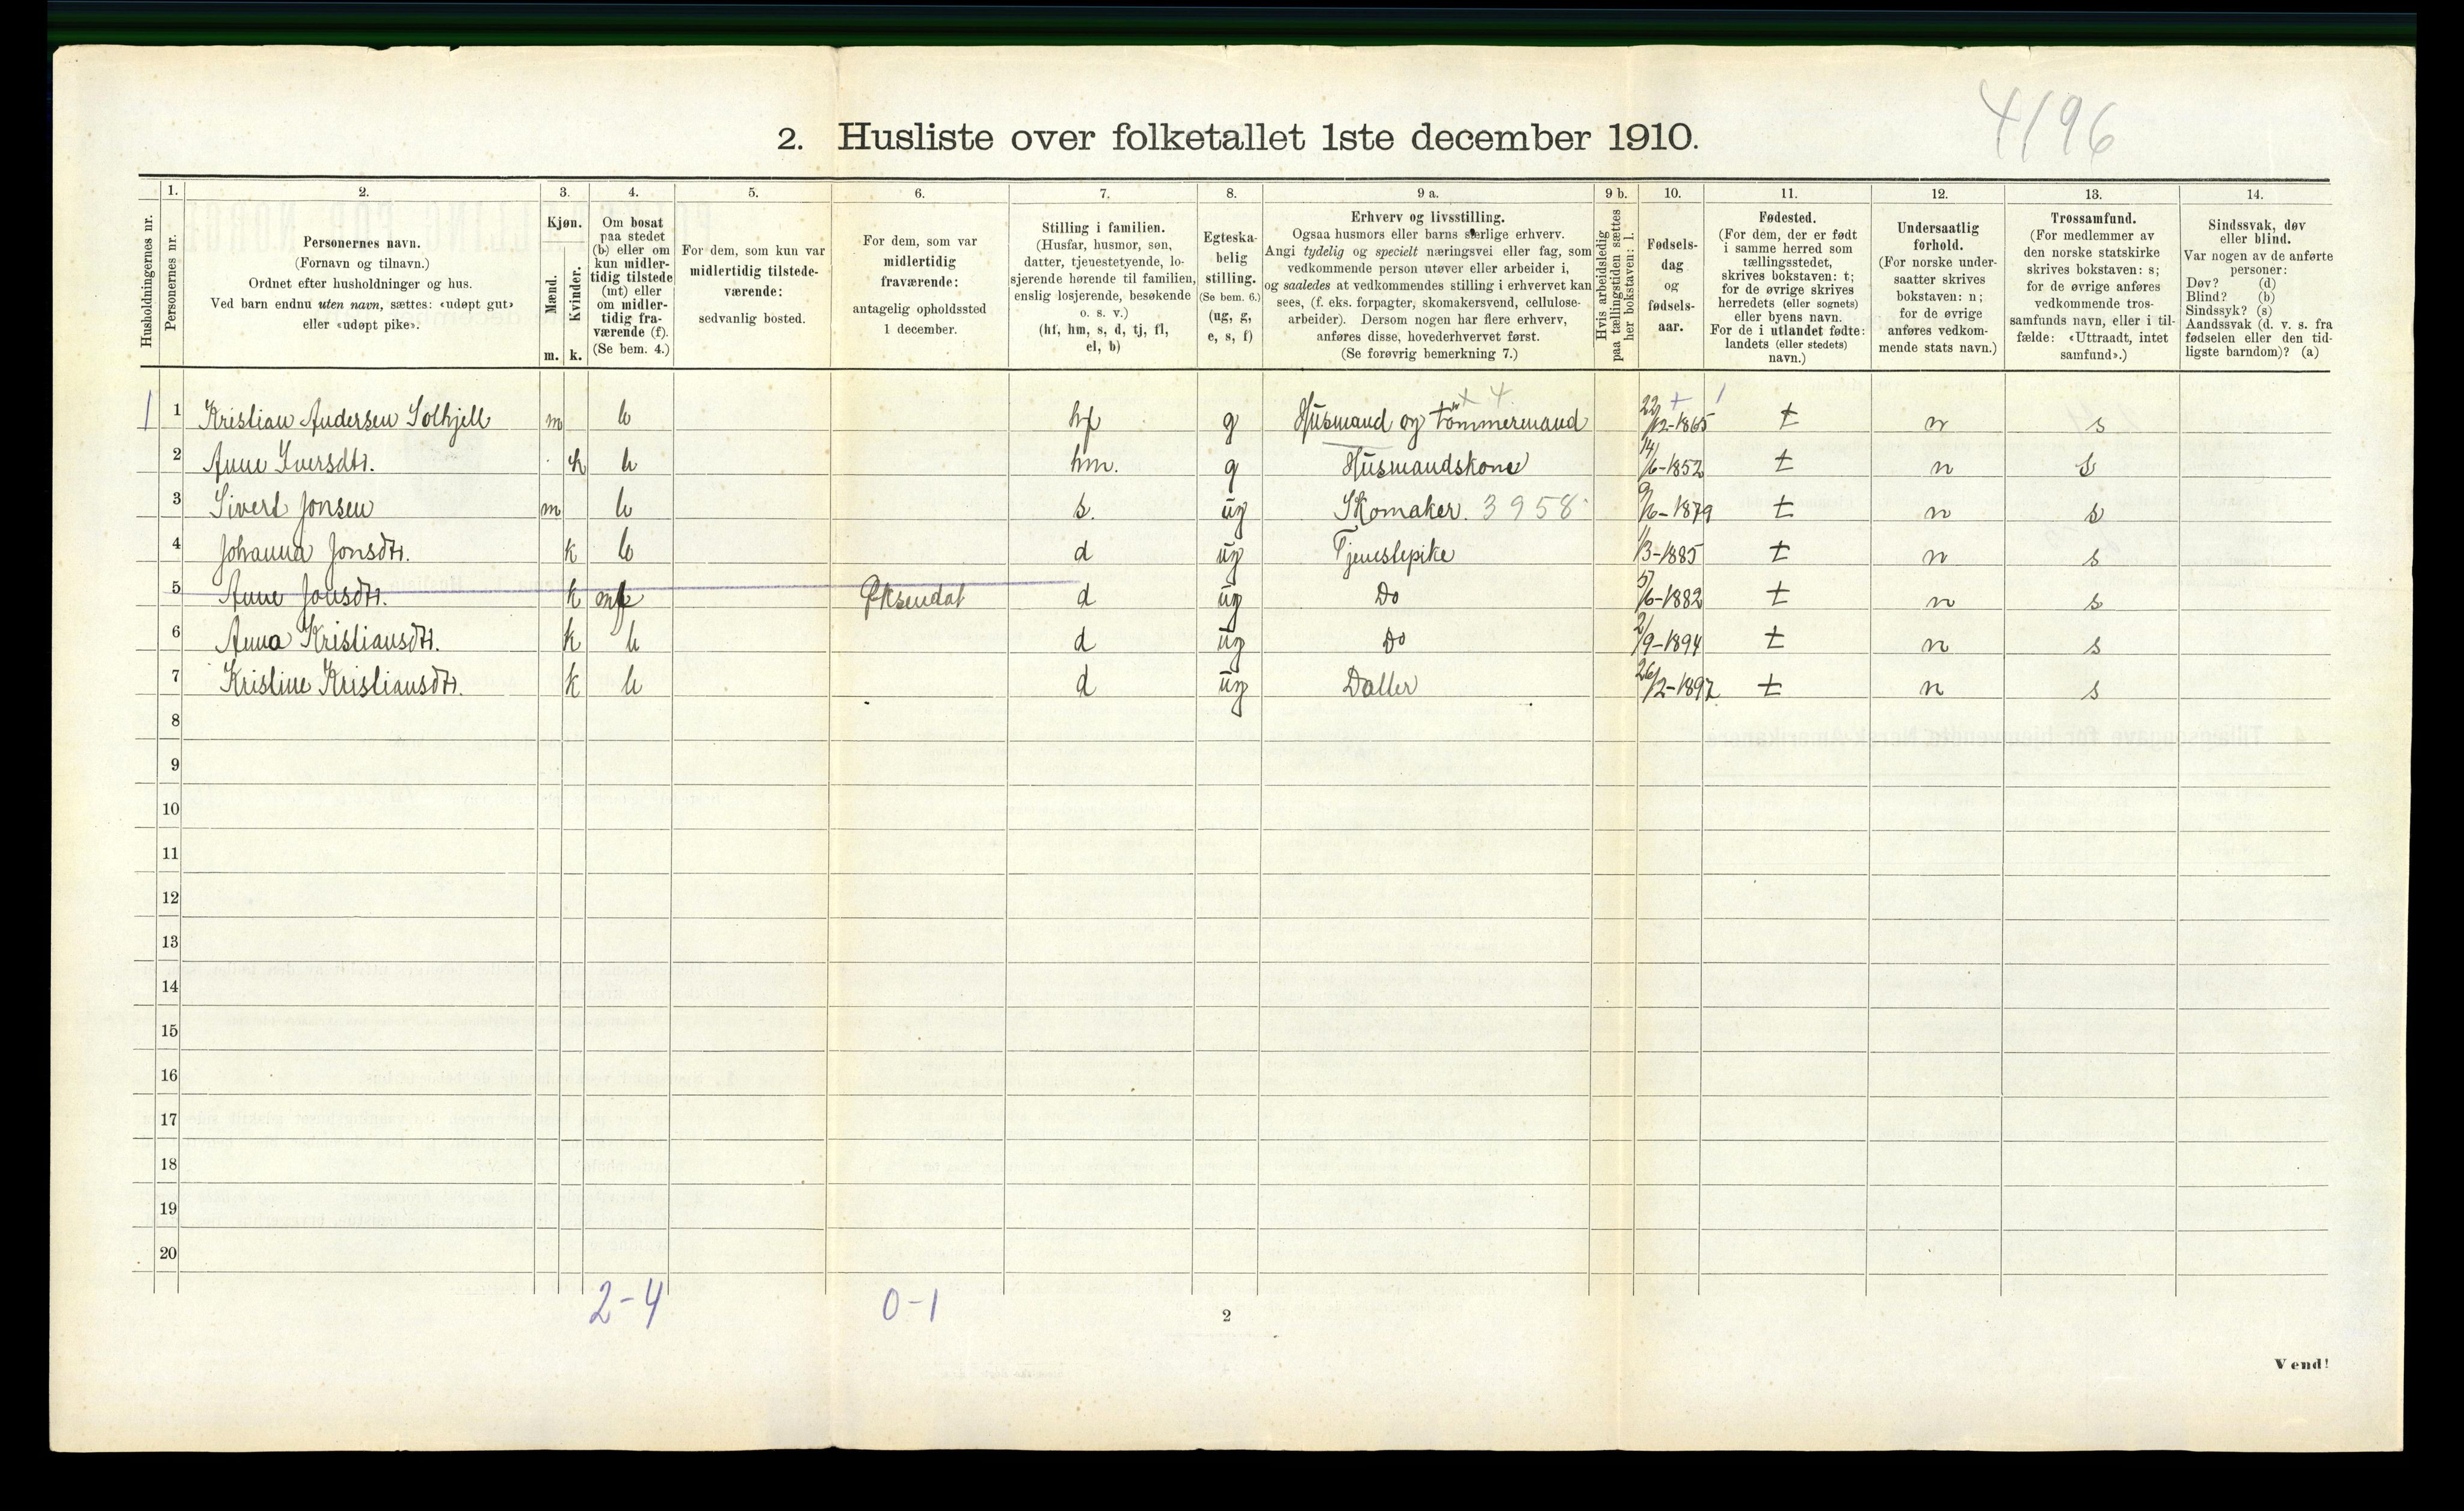 4196
2. Husliste over folketallet 1ste december 1910.
Husholdningernes nr.
1. Personernes nr.
2. Personernes navn.
(Fornavn og tilnavn.)
Ordnet efter husholdninger og hus.
Ved barn endnu uten navn, sættes: «udøpt gut»
eller «udøpt pike».
3. Kjøn.
Mænd. m.
Kvinder. k.
4. Om bosat
paa stedet
(b) eller om
kun midler-
tidig tilstede
(mt) eller
om midler-
tidig fra-
værende (f).
(Se bem. 4.)
5. For dem, som kun var
midlertidig tilstede-
værende:
sedvanlig bosted.
6. For dem, som var
midlertidig
fraværende:
antagelig opholdssted
1 december.
7. Stilling i familien.
(Husfar, husmor, søn,
datter, tjenestetyende, lo-
sjerende hørende til familien,
enslig losjerende, besøkende
o. s. v.)
(hf, hm, s, d, tj, fl,
el, b)
8. Egteska-
belig
stilling.
(Se bem. 6.)
(ug, g,
e, s, f)
9 a. Erhverv og livsstilling.
Ogsaa husmors eller barns særlige erhverv.
Angi tydelig og specielt næringsvei eller fag, som
vedkommende person utøver eller arbeider i,
og saaledes at vedkommendes stilling i erhvervet kan
sees, (f. eks. forpagter, skomakersvend, cellulose-
arbeider). Dersom nogen har flere erhverv,
anføres disse, hovederhvervet først.
(Se forøvrig bemerkning 7.)
9 b. Hvis arbeidsledig
paa tællingstiden sættes
her bokstaven: l.
10. Fødsels-
dag
og
fødsels-
aar.
11. Fødested.
(For dem, der er født
i samme herred som
tællingsstedet,
skrives bokstaven: t;
for de øvrige skrives
herredets (eller sognets)
eller byens navn.
For de i utlandet fødte:
landets (eller stedets)
navn.)
12. Undersaatlig
forhold.
(For norske under-
saatter skrives
bokstaven: n;
for de øvrige
anføres vedkom-
mende stats navn.)
13. Trossamfund.
(For medlemmer av
den norske statskirke
skrives bokstaven: s;
for de øvrige anføres
vedkommende tros-
samfunds navn, eller i til-
fælde: «Uttraadt, intet
samfund».)
14. Sindssvak, døv
eller blind.
Var nogen av de anførte
personer:
Døv? (d)
Blind? (b)
Sindssyk? (s)
Aandssvak (d. v. s. fra
fødselen eller den tid-
ligste barndom)? (a)
x 4. + 1
1 1 Kristian Andersen Solhjell m b hf g Husmand og tømmermand 22/12-1865 t n s
2 Anne Iversdtr. k b hm. g Husmandskone 14/6-1852 t n s
3 Sivert Jonsen m b s. ug Skomaker. 3958 9/6-1879 t n s
4 Johanna Jonsdtr. k b d ug Tjenestepike 1/3-1885 t n s
5 Anne Jonsdtr. k f Øksendal d ug Do 5/6-1882 t n s
6 Anna Kristiansdtr. k b d ug Do 2/9-1894 t n s
7 Kristine Kristiansdtr. k b d ug Datter 26/2-1897 t n s
8
9
10
11
12
13
14
15
16
17
18
19
20
2-4 0-1
2
Vend!